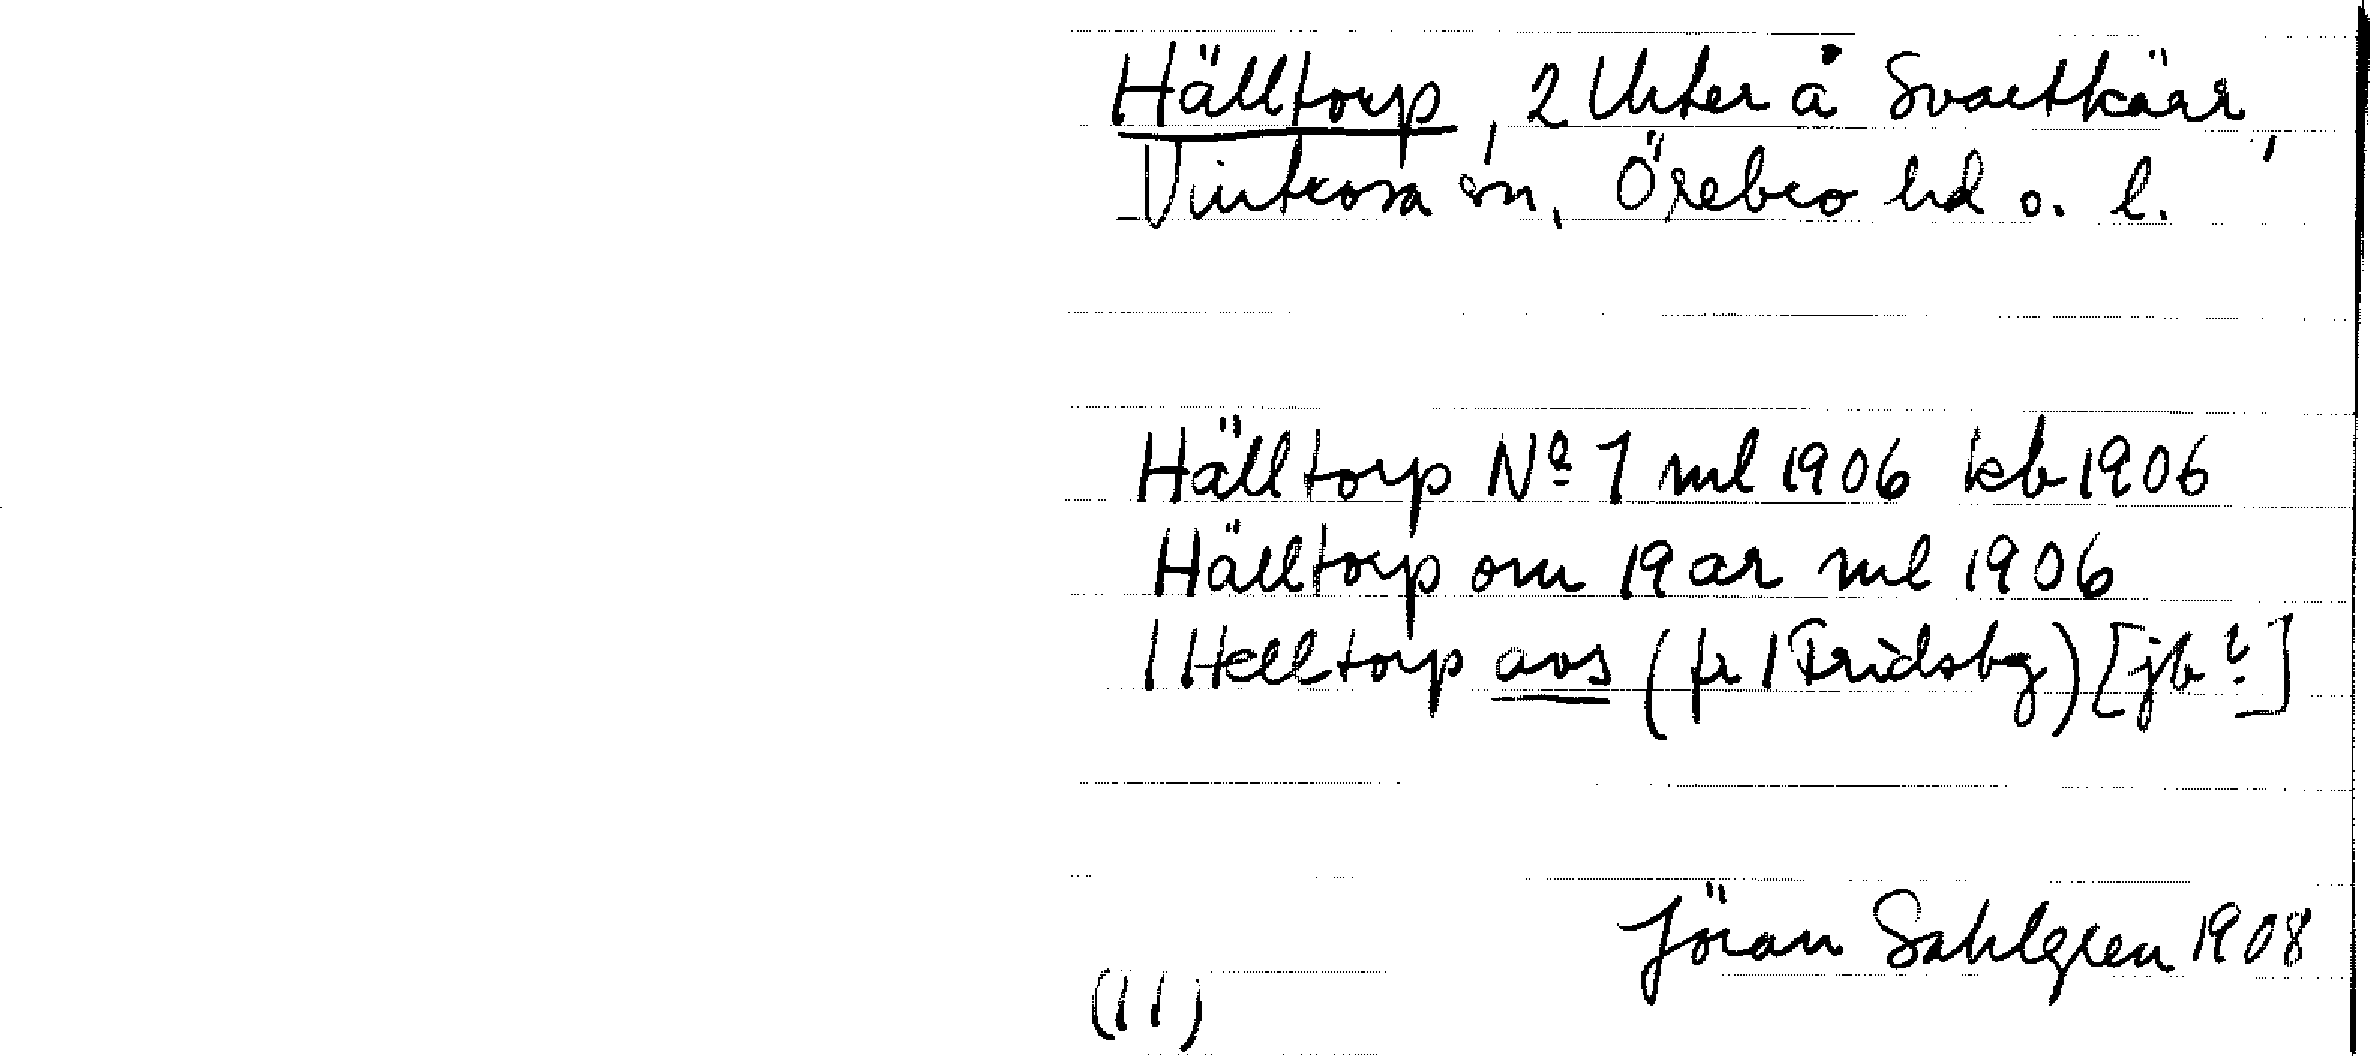 Hälltorp, 2 lhter å Svartkärr,
Vintrosa sn, Örebro hd o. l.
Hälltorp No 1 ml 1906 kb 1906
Hälltorp om 19 ar ml 1906
1 Helltorp avs (fr 1 Fridsbg) [jb?]
Jöran Sahlgren 1908
(11)